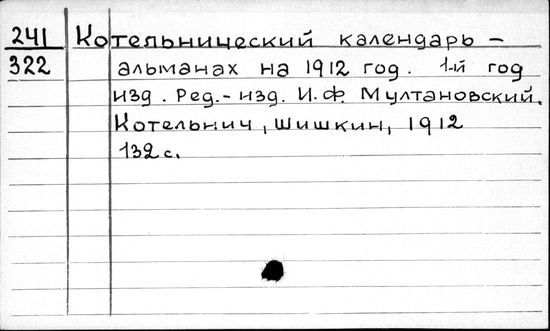 241 Котельнический календарь –
322 альманах на 1912 год. 1-й год
изд. Ред.-изд. И.Ф. Мултановский.
Котельнич, Шишкин, 1912
132 с.